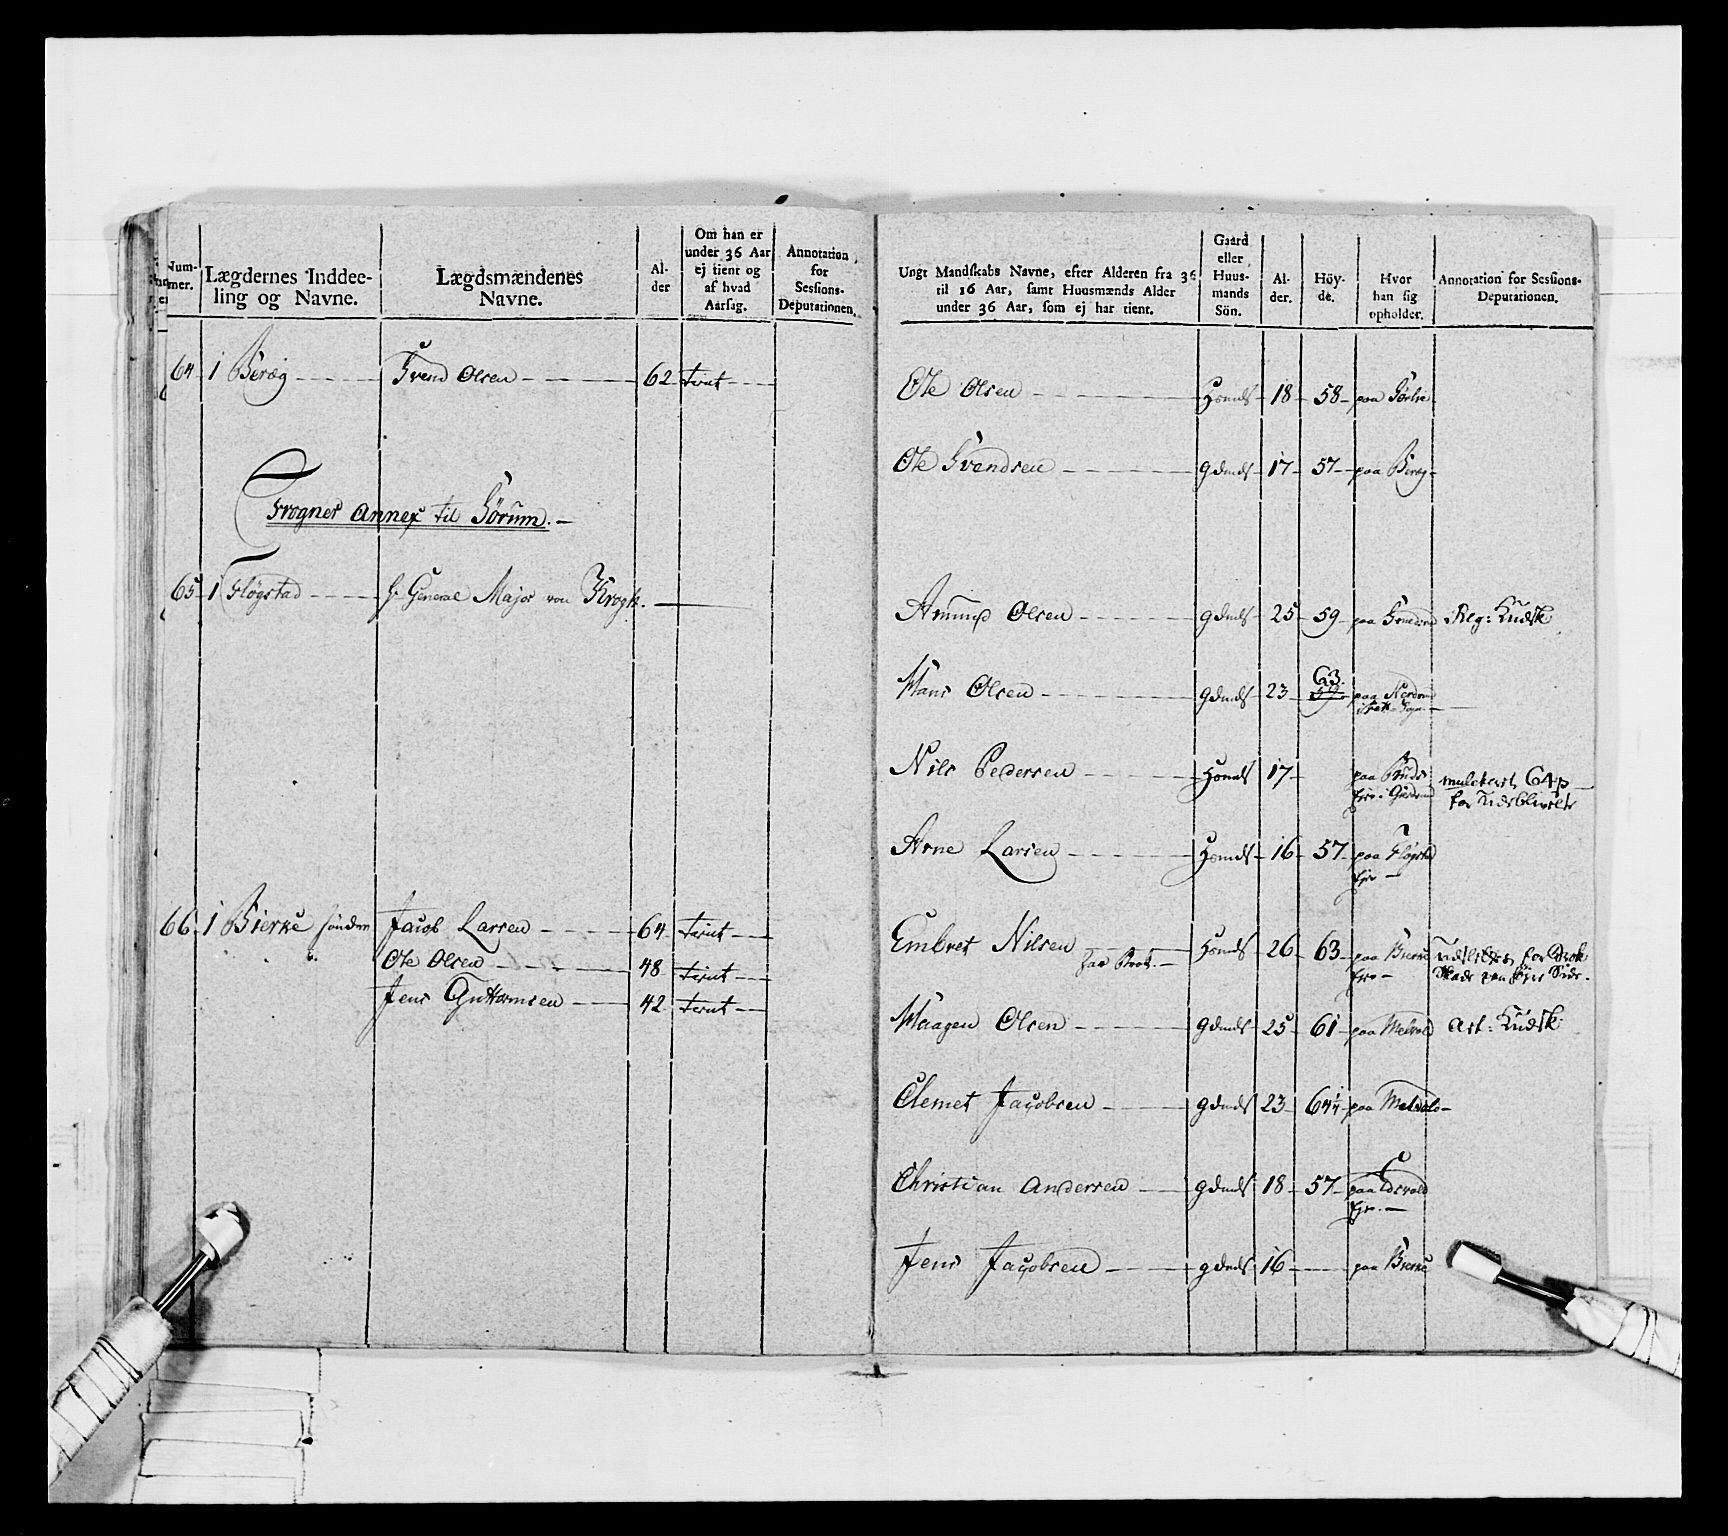 Num-
mer.
Lægdernes Inddee-
ling og Navne.
Lægdsmændenes
Navne.
Al-
der
Om han er
under 36 Aar
ej tient og
af hvad
Aarsag.
Annotation
for
Sessions-
Deputationen.
64 1 Beræg Svend Olsen 62 tient
Frogner Annex til Sørum.
65 1 Fløgstad Hr General Major von Krogh.
66 1 Bierke sønder Jacob Larsen 64 tient
Ole Olsen 48 tient
Jens Guttormsen 42 tient
Ungt Mandskabs Navne, efter Alderen fra 36
til 16 Aar, samt Huusmænds Alder
under 36 Aar, som ej har tient.
Gaard
eller
Huus-
mands
Sön.
Al-
der.
Höy-
de.
Hvor
han sig
opholder.
Annotation for Sessions-
Deputationen.
Ole Olsen Hsmds 18 58 paa
Ole Svendsen gdmds 17 57 paa Beræg
Amund Olsen gdmds 25 59 paa Reg: Kudsk
63
Hans Olsen gdmds 23 59 paa
Nils Pedersen Hsmds 17 paa mulcteret 64 p
for Udeblivelse
Arne Larsen Hsmds 16 57 paa Fløgstad
Eje
Embret Nilsen Hsmds 26 63 paa Bierke Udslettes for Brok
har Brok. Eje Skade paa høyre Side.
Haagen Olsen gdmds 25 61 paa Melvold Art: Kudsk
Clemet Jacobsen gdmds 23 64 1/4 paa Melvold
Christian Andersen gdmds 18 57 paa Edsvold
Eje.
Jens Jacobsen gdmds 16 paa Bierke